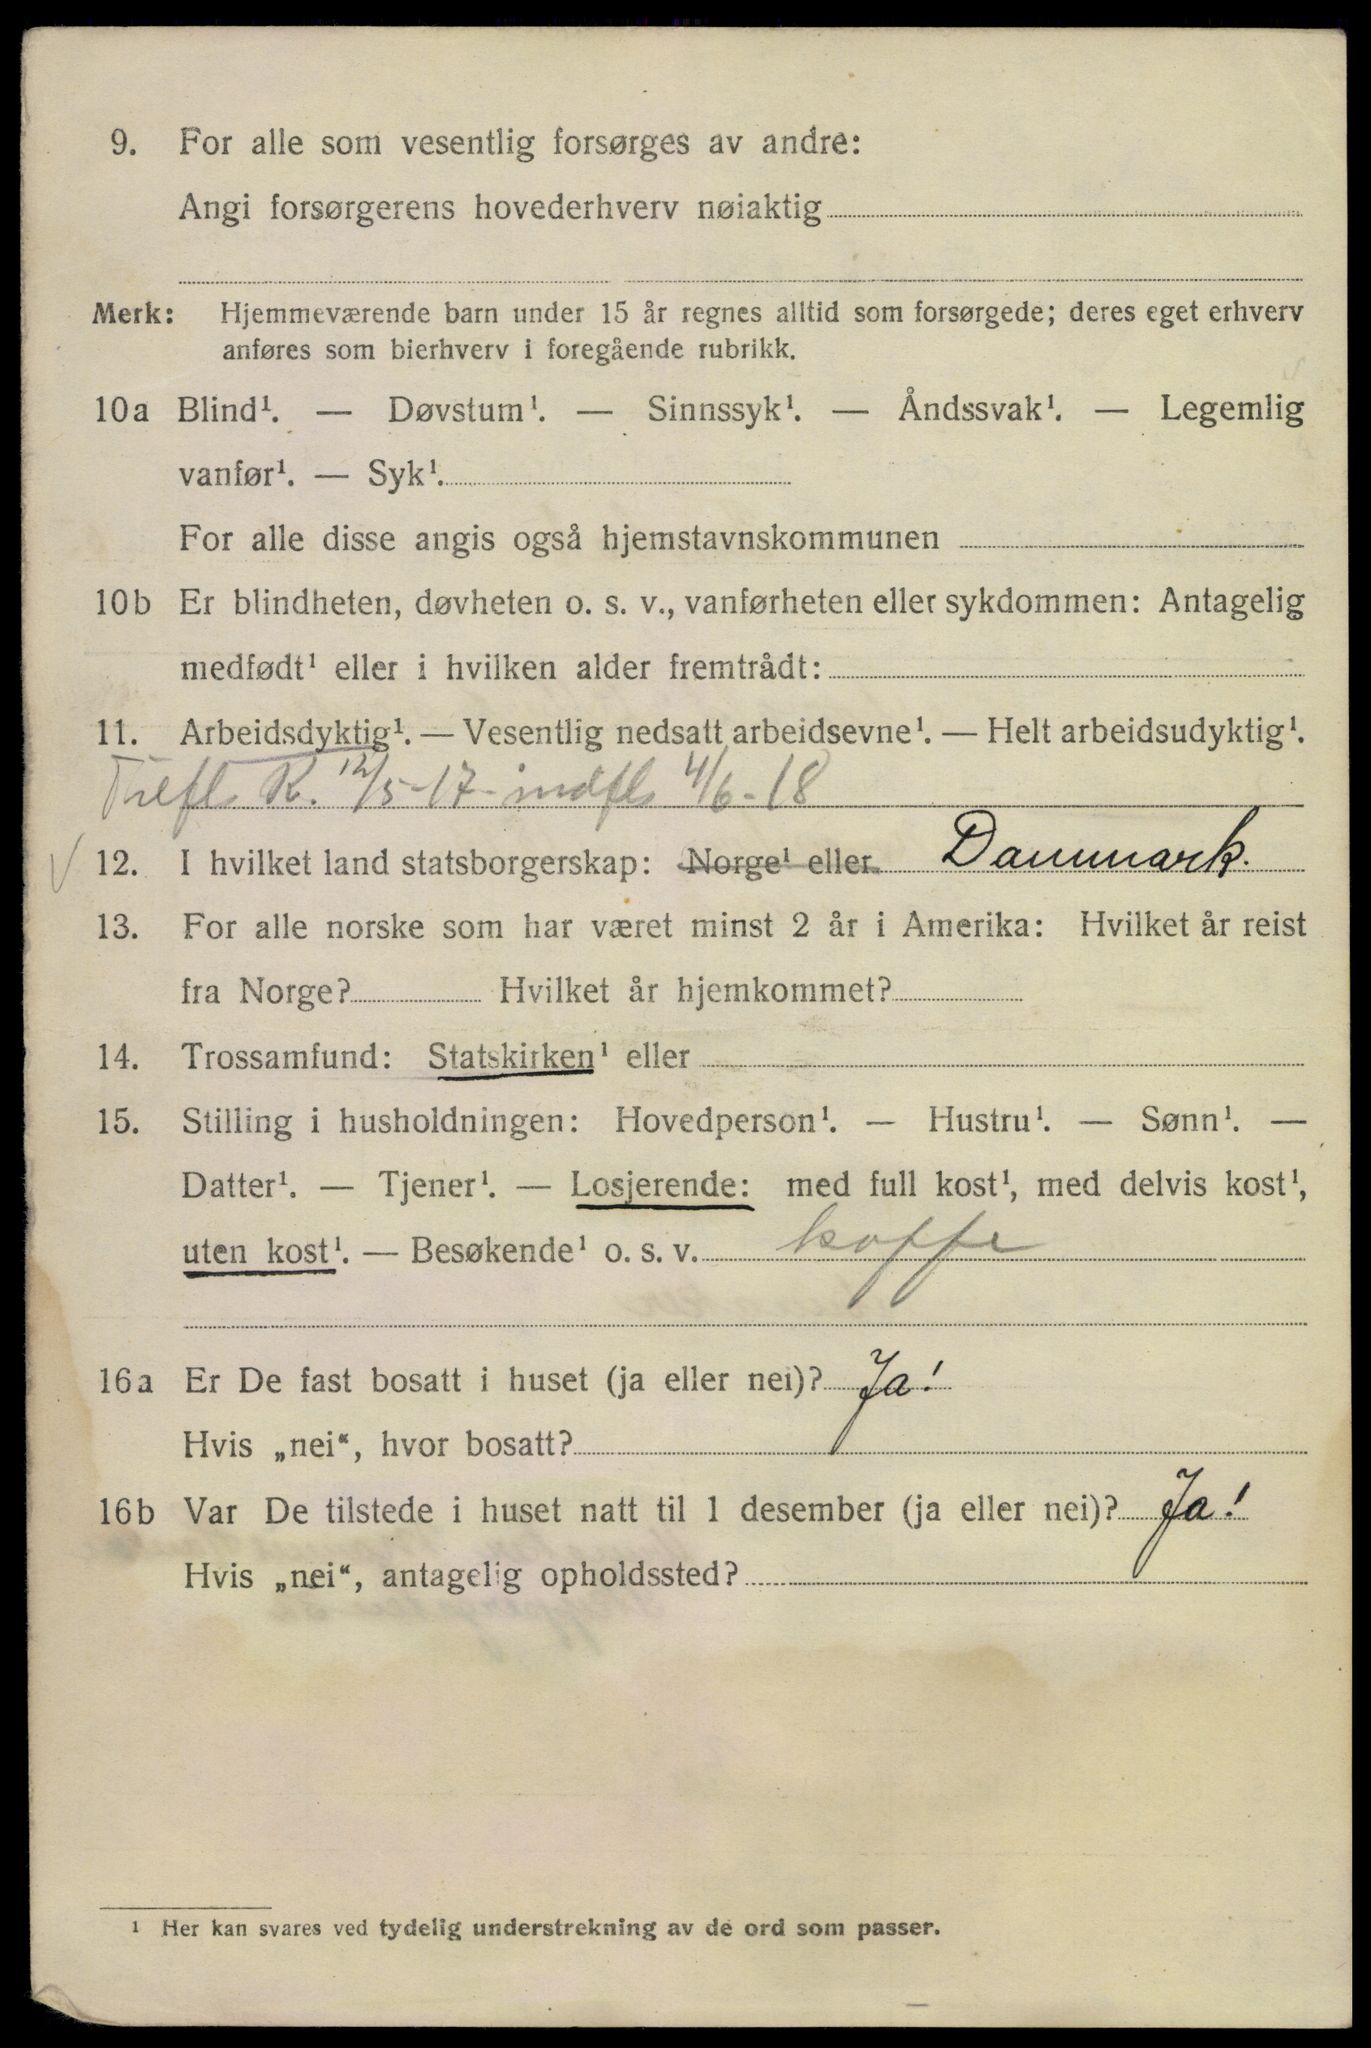 9. For alle som vesentlig forsørges av andre:
Angi forsørgerens hovederhverv nøiaktig
Merk: Hjemmeværende barn under 15 år regnes alltid som forsørgede; deres eget erhverv
anføres som bierhverv i foregående rubrikk.
10a Blind¹. — Døvstum¹. — Sinnssyk¹. — Åndssvak¹. — Legemlig
vanfør¹. — Syk¹.
For alle disse angis også hjemstavnskommunen
10b Er blindheten, døvheten o. s. v., vanførheten eller sykdommen: Antagelig
medfødt¹ eller i hvilken alder fremtrådt:
11. Arbeidsdyktig¹. — Vesentlig nedsatt arbeidsevne¹. — Helt arbeidsudyktig¹.
R. 12/5-17- indfl 4/6-18
12. I hvilket land statsborgerskap: Norge¹ eller Danmark.
13. For alle norske som har været minst 2 år i Amerika: Hvilket år reist
fra Norge? Hvilket år hjemkommet?
14. Trossamfund: Statskirken¹ eller
15. Stilling i husholdningen: Hovedperson¹. — Hustru¹. — Sønn¹. —
Datter¹. — Tjener¹. — Losjerende: med full kost¹, med delvis kost¹,
uten kost¹. — Besøkende¹ o. s. v. koffe
16a Er De fast bosatt i huset (ja eller nei)? Ja!
Hvis „nei“, hvor bosatt?
16b Var De tilstede i huset natt til 1 desember (ja eller nei)? Ja!
Hvis „nei“, antagelig opholdssted?
¹ Her kan svares ved tydelig understrekning av de ord som passer.